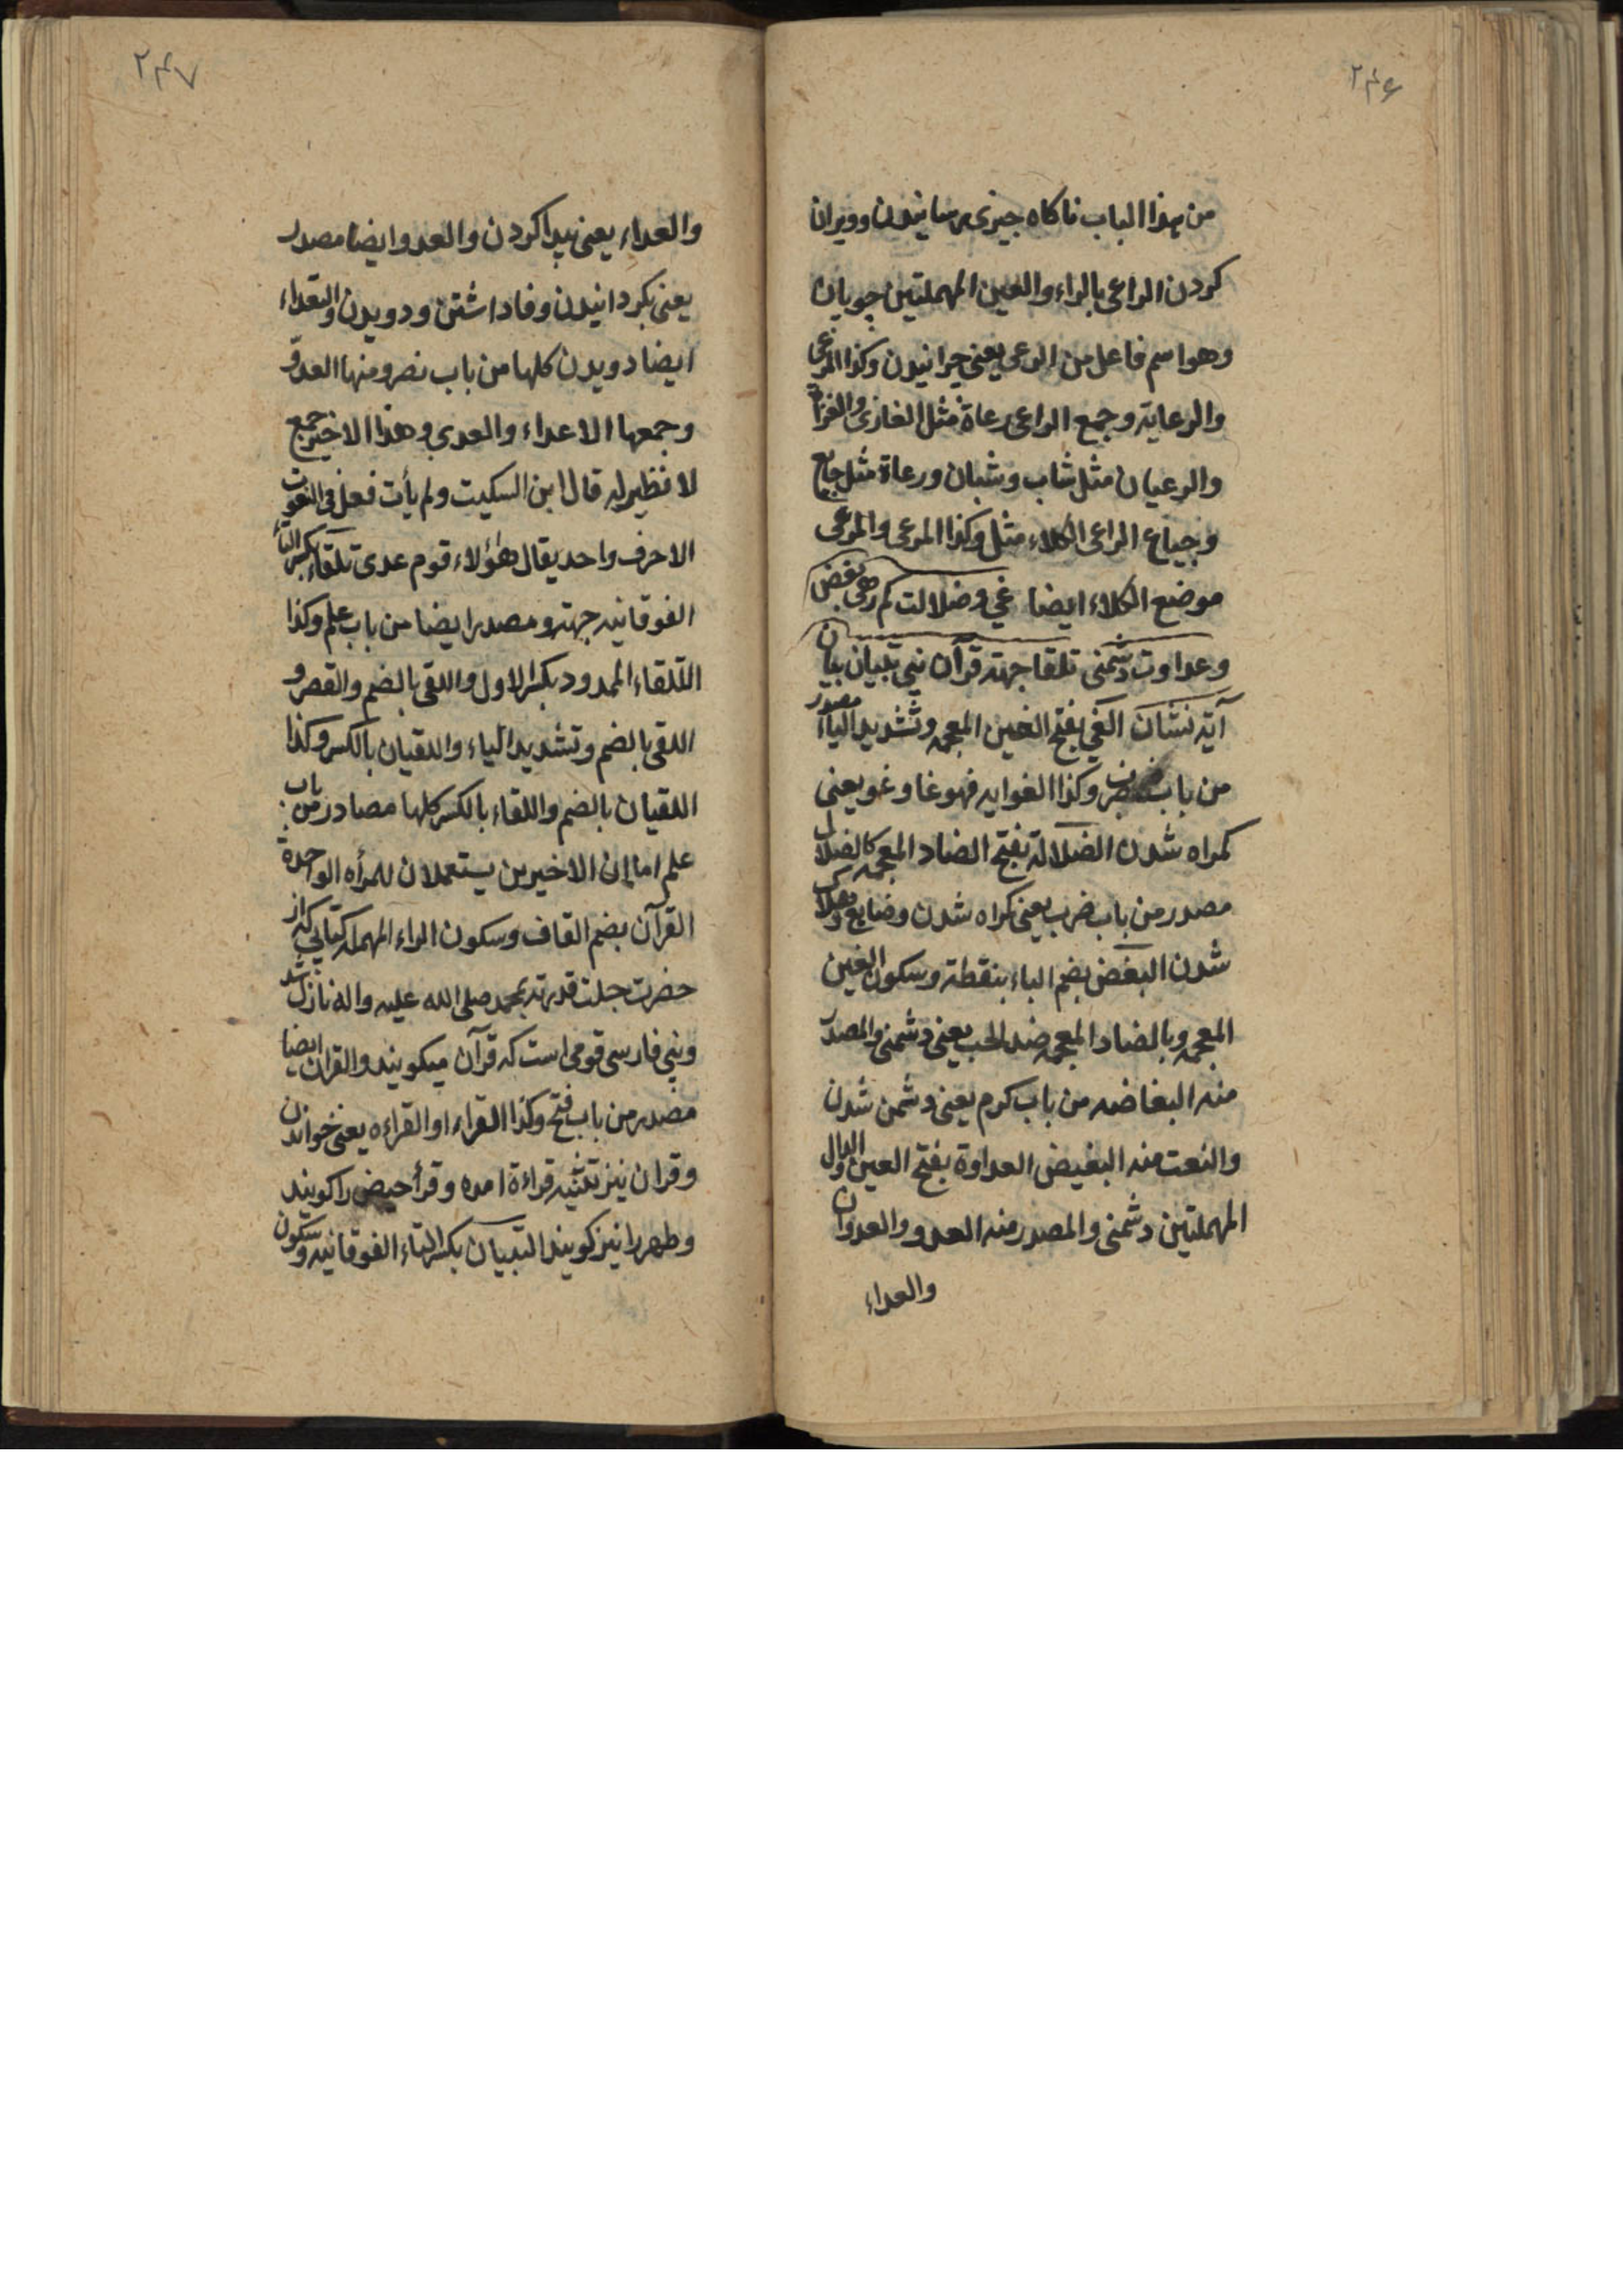 ۲۴۶
من هذا الباب ناكاه چیزی رسانیدن وویران
كردن الراعی بالراء والعین المهملتین چوپان
وهو اسم فاعل من الرعی یعنی چرانیدن وكذا المرعی
والرعایة وجمع الراعی رعاة مثل الغازی والغزاة
والرعیان مثل شاب وشبان ورعاة مثل جایع
وجیاع المراعی الكلاء مثل وكذا المرعی والمرعی
موضع الكلاء ایضا غی وضلالت كم رهی بغض
وعداوت دشمنی تلقا جهته قرآن نبی تبیان بیان
آیة نشان الغی بفتح الغین المعجمه وتشدید الیاء مصدر
من باب ضرب وكذا الغوایه فهو غا وغو یعنی
كمراه شدن الضلالة بفتح الضاد المعجمه كالضلال
مصدر من باب ضرب یعنی كمراه شدن وضایع وهلاك
شدن البغض بضم الباء بنقطة وسكون الغین
المعجمه وبالضاد المعجمه ضد الحب یعنی دشمنی والمصدر
منه البغاضه من باب كرم یعنی دشمن شدن
والنعت منه البغیض العداوة بفتح العین والدال
المهملتین دشمنی والمصدر منه العدو والعدوان
والعداء
۲۴۷
والعداء یعنی پیدا كردن والعدو ایضا مصدر
یعنی بكردانیدن وفاداشتن ودویدن والتعداء
ایضا دویدن كلها من باب نصر ومنها العدو
وجمعها الاعداء والعدی وهذا الاخیر جمع
لا نظیر له قال ابن السكیت ولم یأت فعل فی النعوت
الا حرف واحد یقال هؤلاء قوم عدی تلقاء بكسر التاء
الفوقانیه جهته ومصدر ایضا من باب علم وكذا
التلقاء الممدود بكسر الاول واللقی بالضم والقصر و
اللقی بالضم وتشدید الیاء واللقیان بالكسر وكذا
اللقیان بالضم واللقاء بالكسر كلها مصادر من باب
علم اما ان الاخیرین یستعملان للمرأه الواحدة
القرآن بضم القاف وسكون الراء المهمله كتابی كه از
حضرت جلت قدرته بمحمد صلی الله علیه واله نازل شد
ونبی فارسی قومی است كه قرآن میكویند والقران ایضا
مصدر من باب فتح وكذا القراء او القراءه یعنی خواندن
وقران نیز تثنیه قراءة امده وقرأ حیض را كویند
وطهر را نیز كویند التبیان بكسر التاء الفوقانیه وسكون